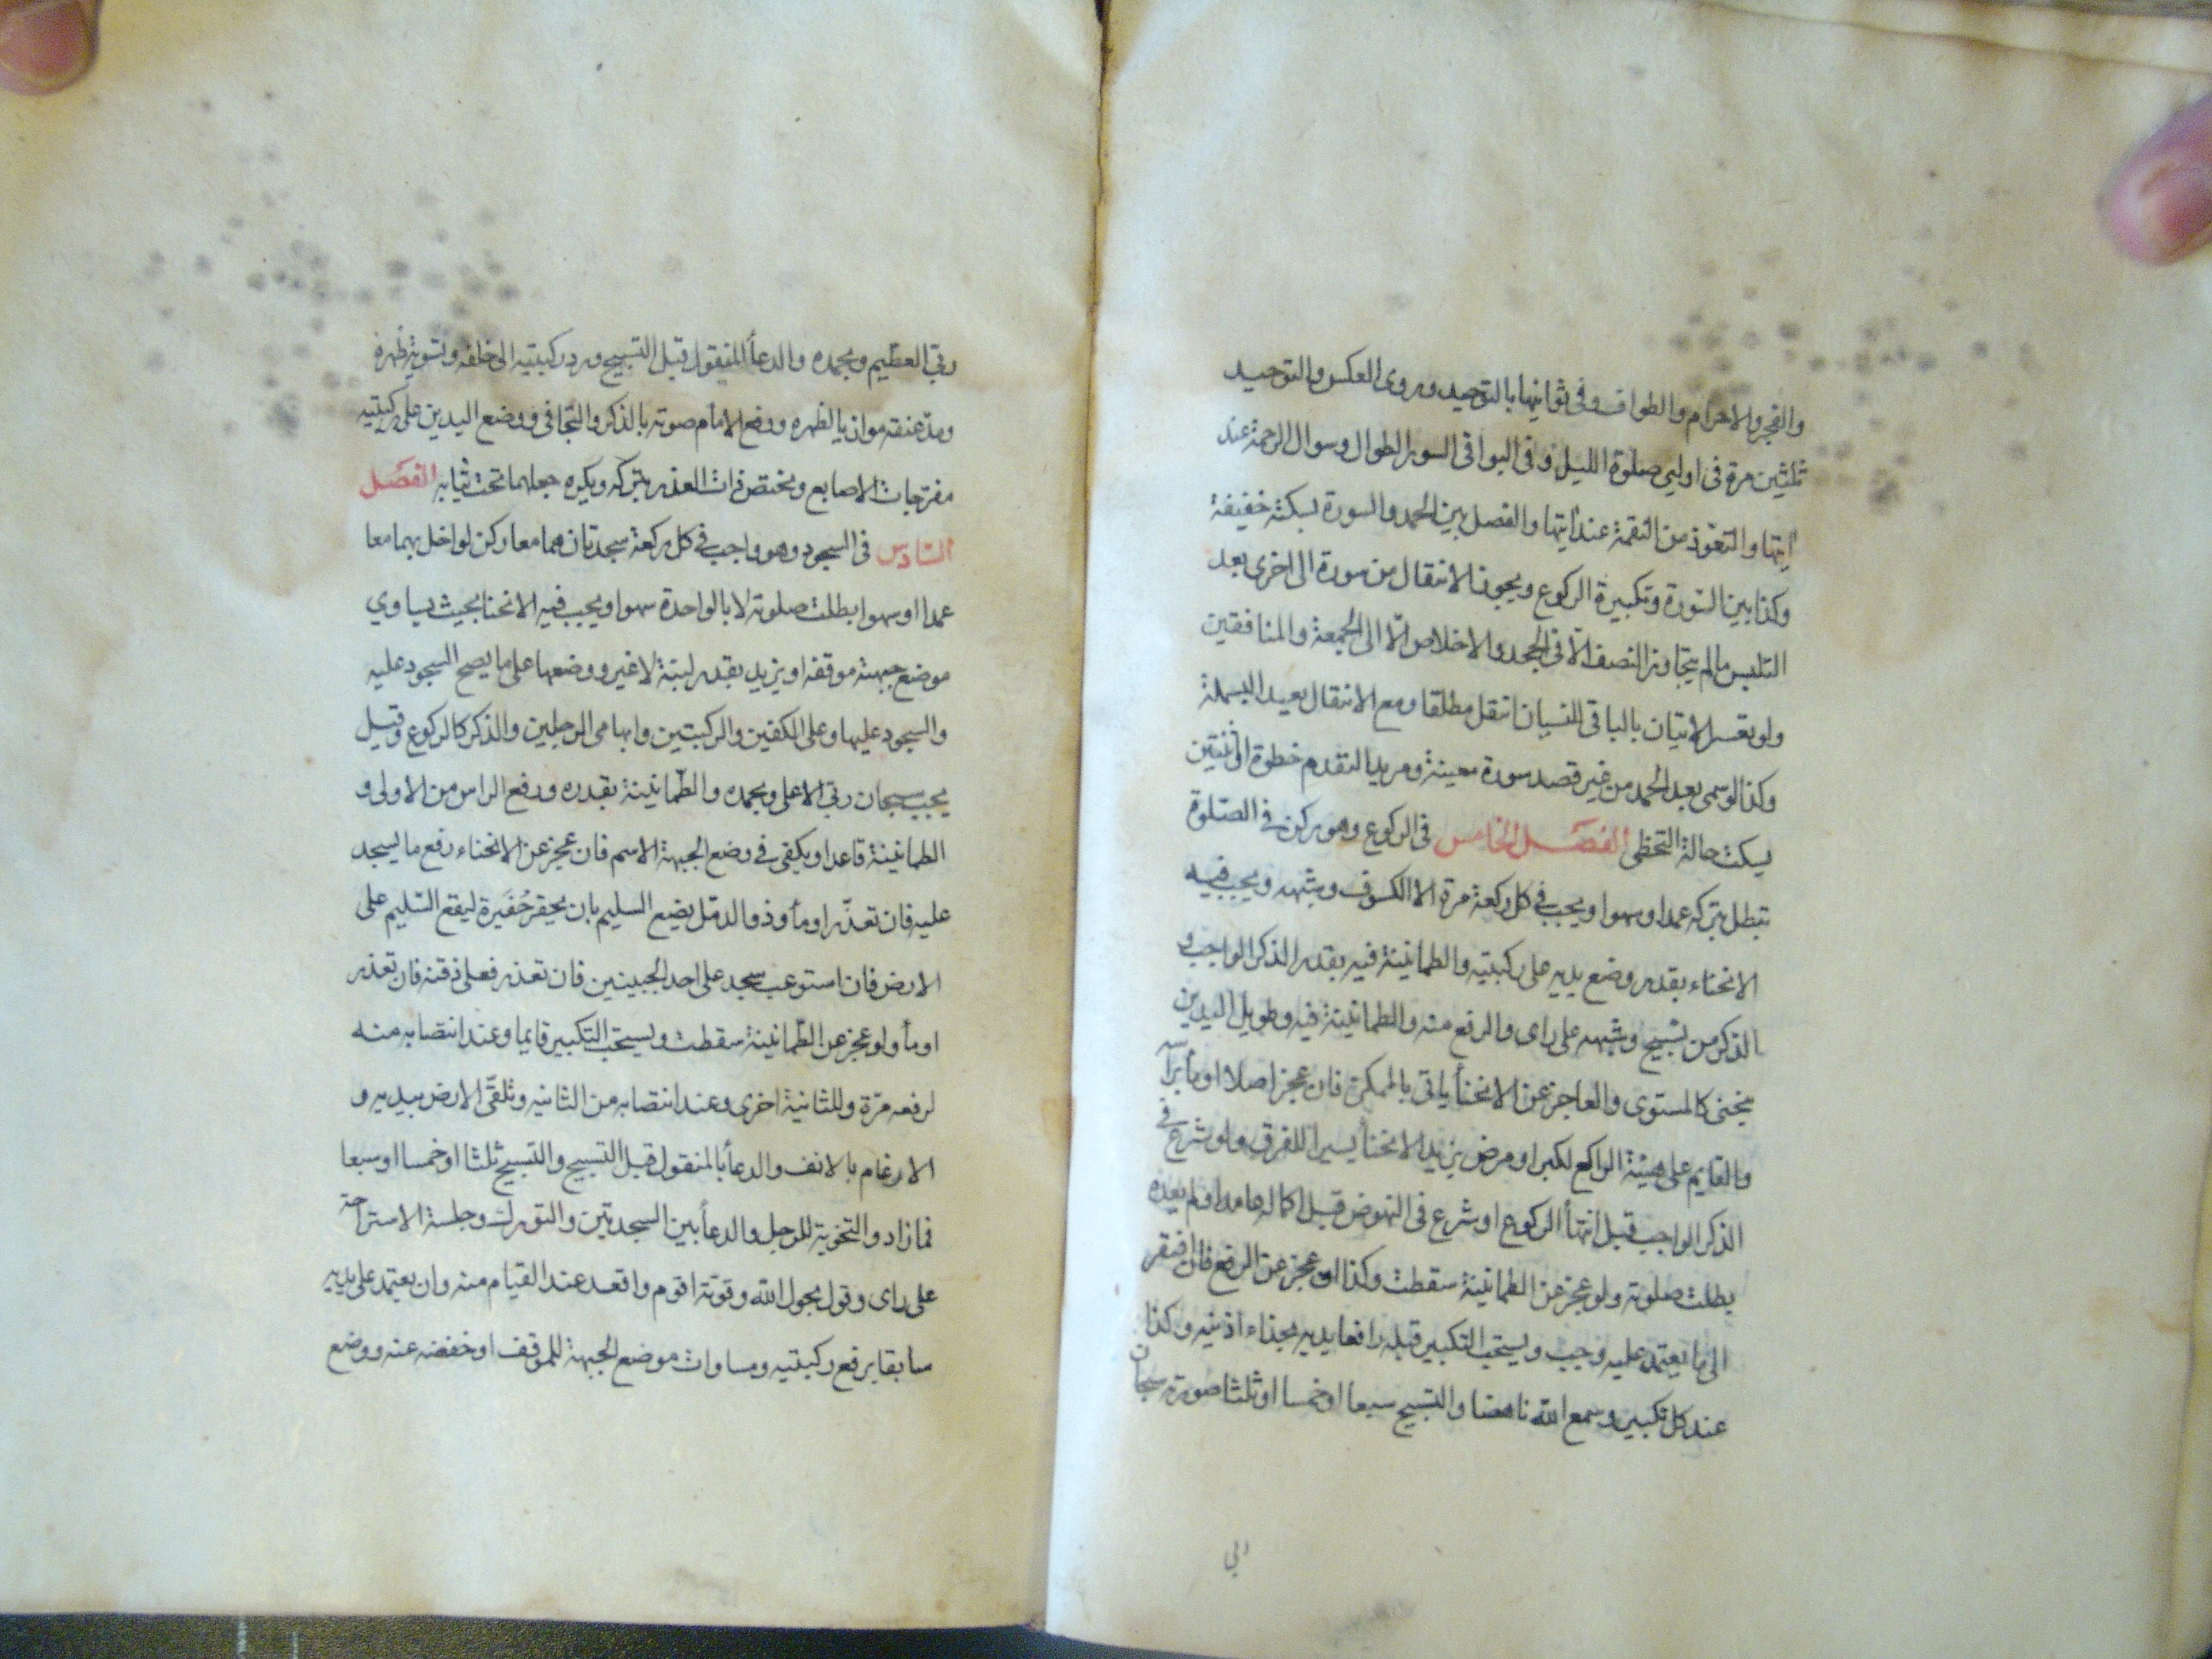 والفجر والاحرام والطواف وفى ثوانيها بالتوحيد وروى العكس والتوحيد
ثلثين مرة فى اوليى صلوة الليل وفى البواقى السور الطوال وسوال الرحمة عند
ايتها والتعوّذ من النقمة عند ايتها والفصل بين الحمد والسورة بسكتة خفيفة
وكذا بين السّورة وتكبيرة الركوع ويجوز الانتقال من سورة الى اخرى بعد
التلبس مالم يتجاوز النصف الّا فى الجحد والاخلاص الّا الى الجمعة والمنافقين
ولو تعسر الاتيان بالباقى للنسيان انتقل مطلقا ومع الانتقال يعيد البسملة
وكذا لو سمى بعد الحمد من غير قصد سورة معينة ومريد التقدم خطوة او ثنتين
يسكت حالة التخطى الفصل الخامس فى الركوع وهو ركن فى الصّلوة
تبطل بتركه عمدا وسهوا ويجب فى كل ركعة مرة الا الكسوف وشبهه ويجب فيه
الانحناء بقدر وضع يديه على ركبتيه والطمانينة فيه بقدر الذكر الواجب و
الذكر من تسبيح وشبهه على راى والرفع منه والطمانينة فيه وطويل اليدين
ينحنى كالمستوى والعاجز عن الانحنأ ياتى بالممكن فان عجز اصلا اومأ برأسه
والقايم على هيئة الراكع لكبر او مرض يزيد الانحنأ يسيرا للفرق ولو شرع فى
الذكر الواجب قبل انتهأ الركوع او شرع فى النهوض قبل اكماله عامدا ولم يعده
بطلت صلوته ولو عجز عن الطمانينة سقطت وكذا لو عجز عن الرفع فان افتقر
الى ما يعتمد عليه وجب ويستحب التكبير قبله رافعا يديه بحذاء اذنيه وكذا
عند كل تكبير وسمع الله ناهضا والتسبيح سبعا او خمسا او ثلثا صورته سبحان
ربى العظيم وبحمده والدعأ المنقول قبل التسبيح ورد ركبتيه الى خلفه وتسوية ظهره
ومدّ عنقه موازيا لظهره ورفع الامام صوته بالذكر والتجافى ووضع اليدين على ركبتيه
مفرّجات الاصابع ويختص ذات العذر بتركه ويكره جعلهما تحت ثيابه الفصل
السّادس فى السجود وهو واجب فى كل ركعة سجدتان هما معا ركن لو اخل بهما معا
عمدا او سهوا بطلت صلوته لا بالواحدة سهوا ويجب فيه الانحنا بحيث يساوي
موضع جبهته موقفه او يزيد بقدر لبنة لا غير ووضعها على ما يصح السجود عليه
والسجود عليها وعلى الكفين والركبتين وابهامى الرجلين والذكر كالركوع وقيل
يجب سبحان ربى الاعلى وبحمده والطّمانينة بقدره ورفع الراس من الاولى و
الطمانينة قاعدا ويكفى فى وضع الجبهة الاسم فان عجز عن الانحناء رفع ما يسجد
عليه فان تعذّر اومأ وذو الدمّل يضع السليم بان يحفر حُفَيرة ليقع السّليم على
الارض فان استوعب سجد على احد الجبينين فان تعذر فعلى ذقنه فان تعذر
اومأ ولو عجز عن الطّمانينة سقطت ويستحب التكبير قايما وعند انتصابه منه
لرفعه مرّة وللثانية اخرى وعند انتصابه من الثانيه وتلقّى الارض بيديه و
الارغام بالانف والدعأ بالمنقول قبل التسبيح والتسبيح ثلثا او خمسا او سبعا
فما زاد والتخوية للرجل والدعأ بين السجدتين والتورك وجلسة الاستراحة
على راى وقول بحول الله وقوّته اقوم واقعد عند القيام منه وان يعتمد على يديه
سابقا برفع ركبتيه ومساوات موضع الجبهة للموقف او خفضه عنه ووضع